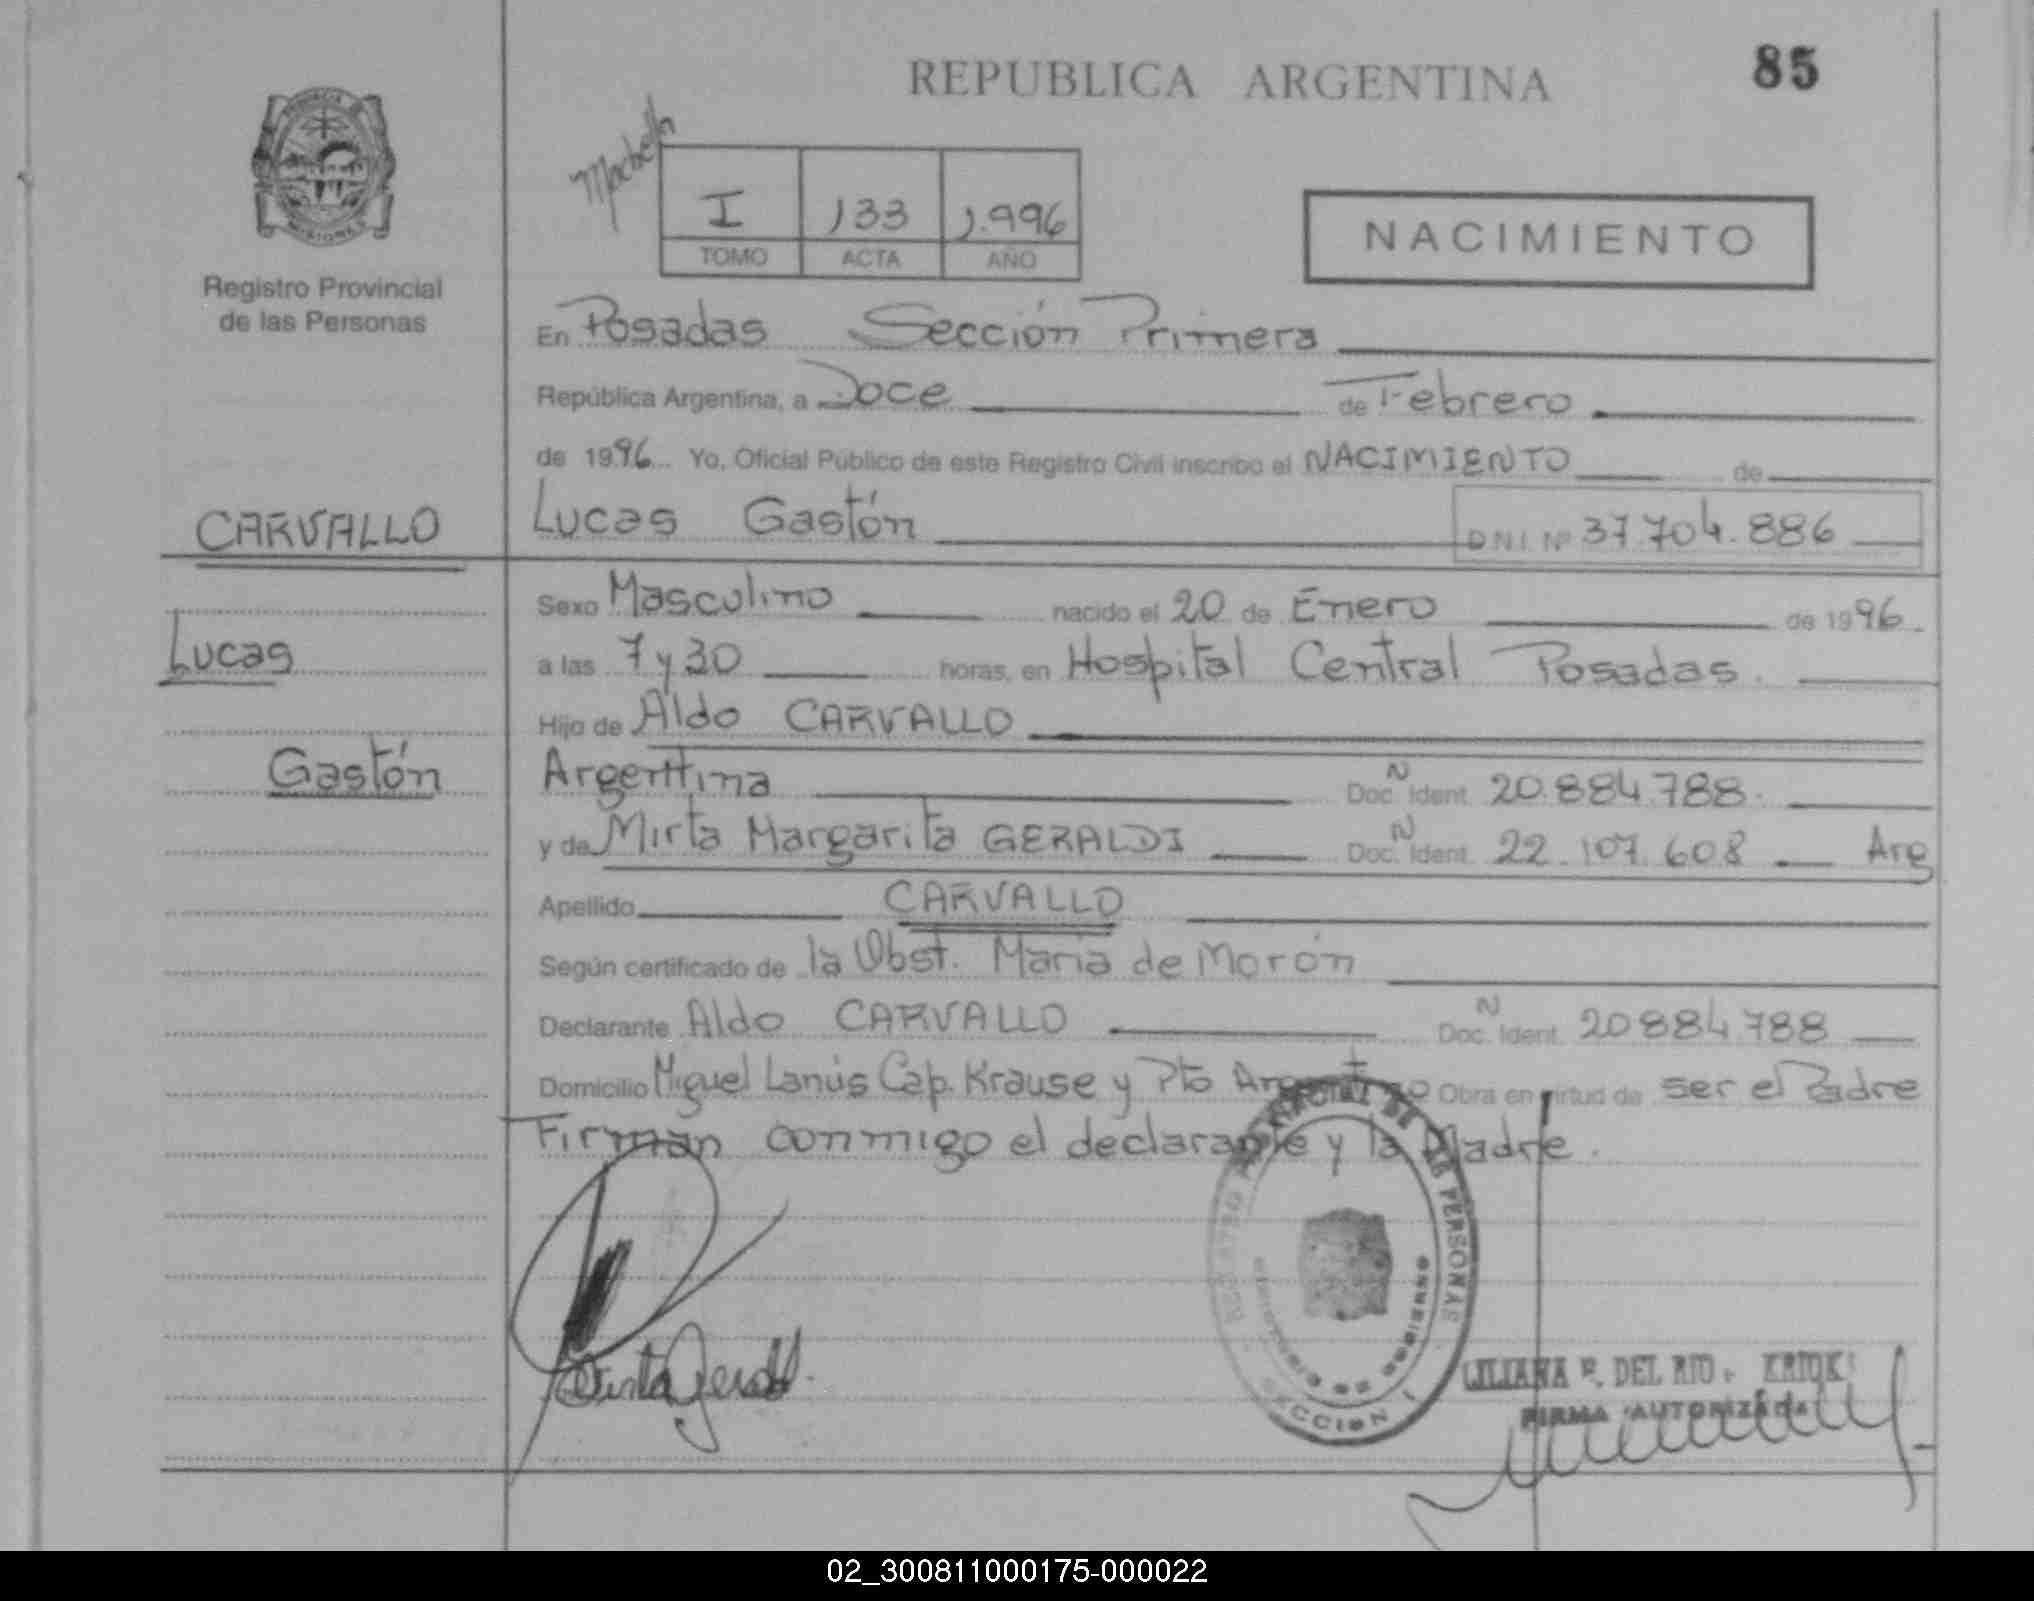 REPUBLICA ARGENTINA
85
MISIONES
Registro Provincial
de las Personas
I 133 1.996
TOMO ACTA AÑO
NACIMIENTO
En Posadas Sección Primera
República Argentina, a Doce de Febrero
de 1996 Yo, Oficial Público de este Registro Civil inscribo el NACIMIENTO de
CARVALLO
Lucas Gastón D N I Nº 37.704.886
Sexo Masculino nacido el 20 de Enero de 1996
Lucas
a las 7 y 30 horas, en Hospital Central Posadas.
Hijo de Aldo CARVALLO
Gastón
Argentina Doc. N Ident. 20.884.788.
y de Mirta Margarita GERALDI Doc. N Ident. 22.107.608 Arg
Apellido CARVALLO
Según certificado de la Obst. María de Morón
Declarante Aldo CARVALLO Doc. N Ident. 20884.788
Domicilio Miguel Lanús Cap. Krause y Pto Argentino Obra en virtud de ser el Padre
Firman conmigo el declarante y la Madre.
DE LAS PERSONAS
SECCION I
LILIANA E. DEL RIO
FIRMA AUTORIZADA
02_300811000175-000022